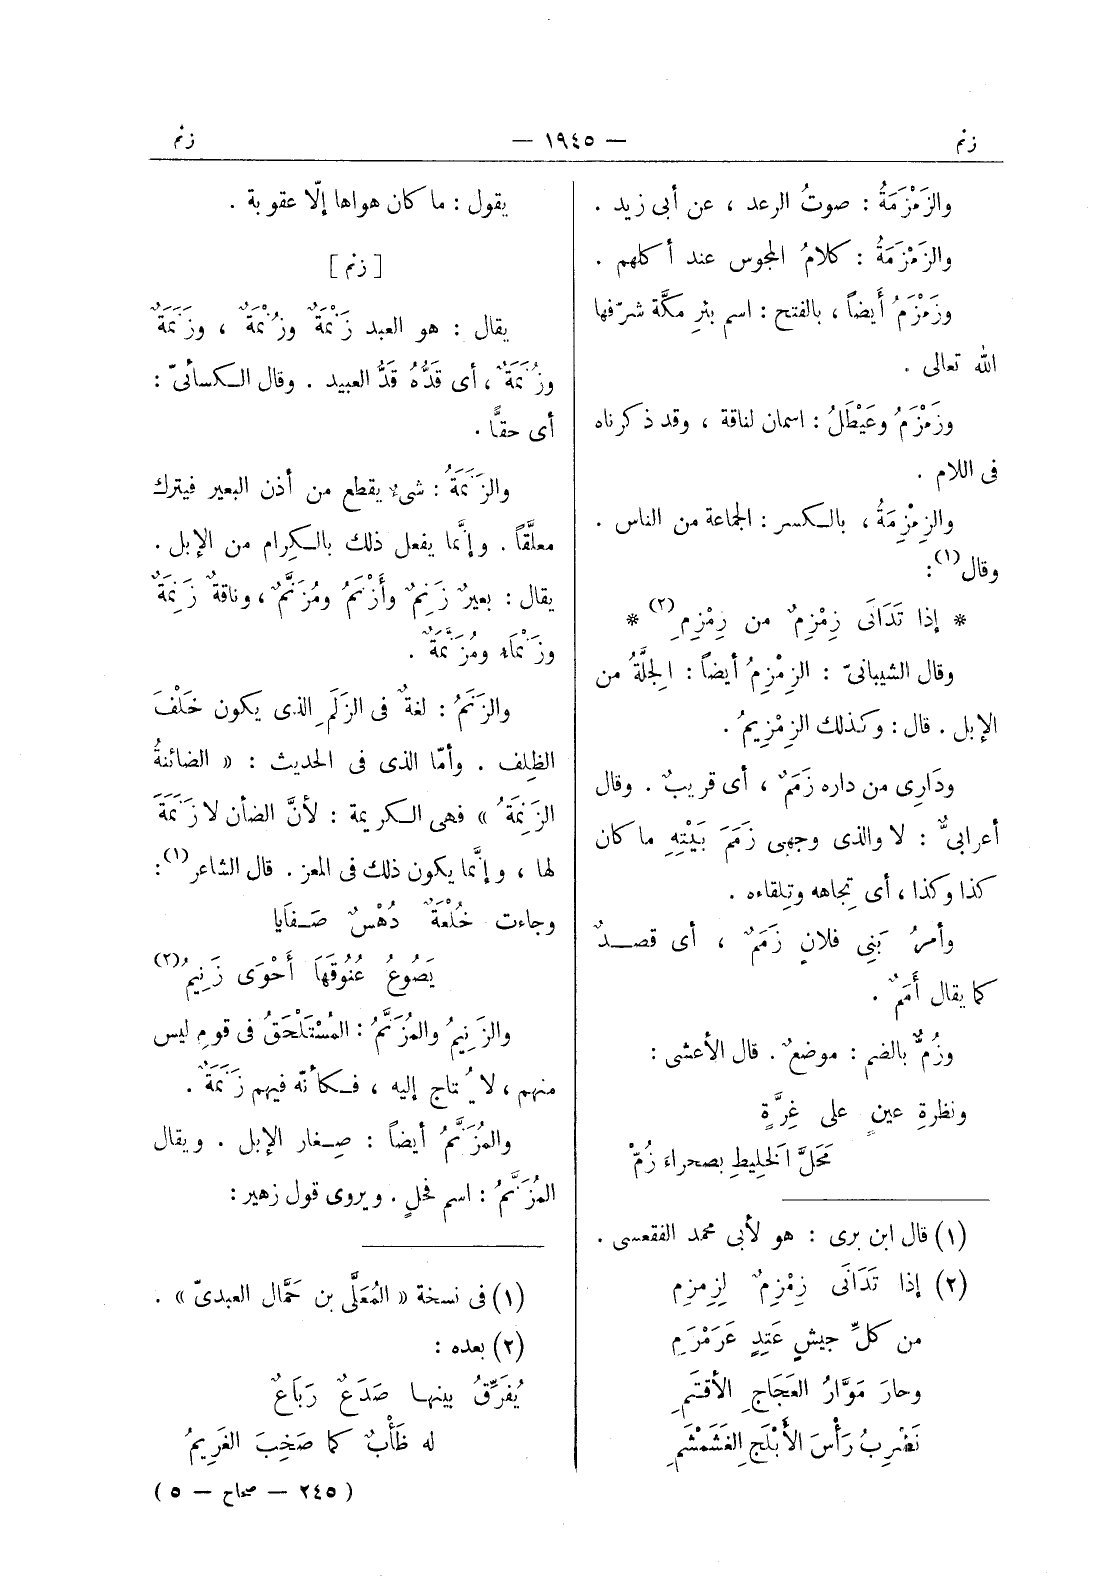 زنم — ١٩٤٥ — زنم
والزَمْزَمَةُ : صوتُ الرعد ، عن أبى زيد .
والزَمْزَمَةُ : كلامُ المجوس عند أكلهم .
وزَمْزَمُ أيضاً ، بالفتح : اسم بئرِ مكَّة شرّفها
الله تعالى .
وزَمْزَمُ وعَيْطَلُ : اسمان لناقة ، وقد ذكرناه
فى اللام .
والزِمْزِمَةُ ، بالكسر : الجماعة من الناس .
وقال(١) :
* إذا تَدَانَى زِمْزِمٌ من زِمْزِمِ(٢) *
وقال الشيبانىّ : الزِمْزِمُ أيضاً : الجِلَّةُ من
الإبل . قال : وكذلك الزِمْزِيمُ .
ودَارِى من داره زَمَمٌ ، أى قريبٌ . وقال
أعرابىٌّ : لا والذى وجهى زَمَمَ بَيْتِهِ ما كان
كذا وكذا ، أى تِجاهه وتِلقاءه .
وأمرُ بَنِى فلانٍ زَمَمٌ ، أى قصدٌ
كما يقال أَمَمٌ .
وزُمٌّ بالضم : موضعٌ . قال الأعشى :
ونظرةِ عينٍ على غِرَّةٍ
مَحَلَّ الخَلِيطِ بصحراءَ زُمّْ
(١) قال ابن برى : هو لأبى محمد الفقعسى .
(٢) إذا تَدَانَى زِمْزِمٌ لِزِمزِمِ
من كلِّ جيشٍ عَتِدٍ عَرَمْرَمِ
وحارَ مَوَّارُ العَجَاجِ الأقتَمِ
نَضْرِبُ رَأْسَ الأَبْلَجِ الغَشَمْشَمِ
يقول : ما كان هواها إلّا عقوبة .
[ زنم ]
يقال : هو العبد زَنْمَةٌ وزُنْمَةٌ ، وزَنَمَةٌ
وزُنَمَةٌ ، أى قَدُّهُ قَدُّ العبيد . وقال الكسائىّ :
أى حقًّا .
والزَنَمَةُ : شىء يقطع من أذن البعير فيترك
معلَّقاً . وإنَّما يفعل ذلك بالكِرام من الإبل .
يقال : بعيرٌ زَنِمٌ وأَزْنَمُ ومُزَنَّمٌ ، وناقةٌ زَنِمَةٌ
وزَنْمَاءُ ومُزَنَّمَةٌ .
والزَنَمُ : لغةٌ فى الزَلَمِ الذى يكون خَلْفَ
الظِلف . وأمّا الذى فى الحديث : « الضائنةُ
الزَنِمَةُ » فهى الكريمة : لأنَّ الضأن لا زَنَمَةَ
لها ، وإنَّما يكون ذلك فى المعز . قال الشاعر(١) :
وجاءت خُلْعَةٌ دُهْسٌ صَفَايَا
يَصُوعُ عُنُوقَهَا أَحْوَى زَنِيمُ(٢)
والزَنِيمُ والمُزَنَّمُ : المُسْتَلْحَقُ فى قومٍ ليس
منهم ، لا يُحتاج إليه ، فكأنّه فيهم زَنَمَةٌ .
والمُزَنَّمُ أيضاً : صِغار الإبل . ويقال
المُزَنَّمُ : اسم فحلٍ . ويروى قول زهير :
(١) فى نسخة « المُعَلَّى بن حَمَّال العبدىّ » .
(٢) بعده :
يُفَرِّقُ بينها صَدَعٌ رَبَاعٌ
له ظَأْبٌ كما صَخِبَ الغَرِيمُ
( ٢٤٥ — صحاح — ٥ )